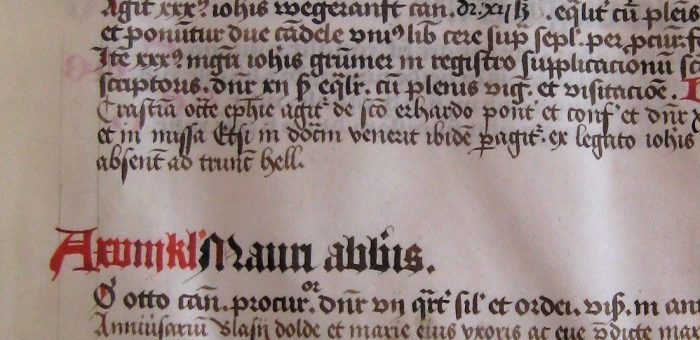 Agit᷑ xxxꝰ ioh̄is wegeranst can. dr. xij lb . eq̄lit᷑ cū pleni
et ponūtur due cādele vniꝰ lib cere sup̄ sepl. per ꝓcur.
Itē xxxꝰ mgr̄i ioh̄is grūmet in registro supplicacionū
scriptoris. dn̄r xij ꝑ eq̄lr. cū plenis vig. et visitacioē.
Crastīa octē ephīe agit᷑ de scō erhardo pont᷑ et conf᷑ et dn̄r
et in missa Etsi in doīcm venerit ibidē ꝑagit᷑. ex legato ioh̄is
absent ad trunc̄ hell.
A xviii kl Mauri abb̄is.
O otto cān. procur.or dn̄r vij qr̄t sil et ordei. vis̄. in
Anniūsariū blasij dolde et marie eius vxoris ac eue p̄dicte